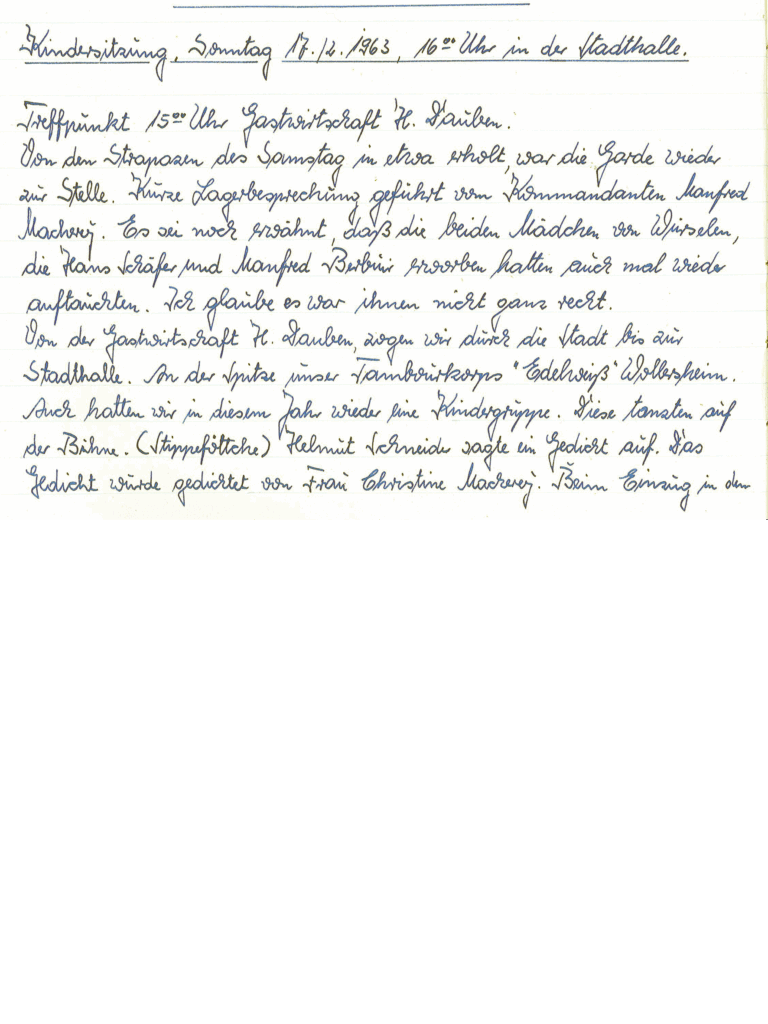 Kindersitzung, Sonntag 17.2.1963, 16⁰⁰ Uhr in der Stadthalle.
Treffpunkt 15⁰⁰ Uhr Gastwirtschaft H. Dauben.
Von den Strapazen des Samstag in etwa erholt, war die Garde wieder
zur Stelle. Kurze Lagerbesprechung geführt vom Kommandanten Manfred
Macherey. Es sei noch erwähnt, daß die beiden Mädchen von Würselen,
die Hans Schäfer und Manfred Berbuir erworben hatten auch mal wieder
auftauchten. Ich glaube es war ihnen nicht ganz recht.
Von der Gastwirtschaft H. Dauben, zogen wir durch die Stadt bis zur
Stadthalle. An der Spitze unser Tambourkorps "Edelweiß" Wollersheim.
Auch hatten wir in diesem Jahr wieder eine Kindergruppe. Diese tanzten auf
der Bühne. (Stippeföttche) Helmut Schneider sagte ein Gedicht auf. Das
Gedicht wurde gedichtet von Frau Christine Macherey. Beim Einzug in den